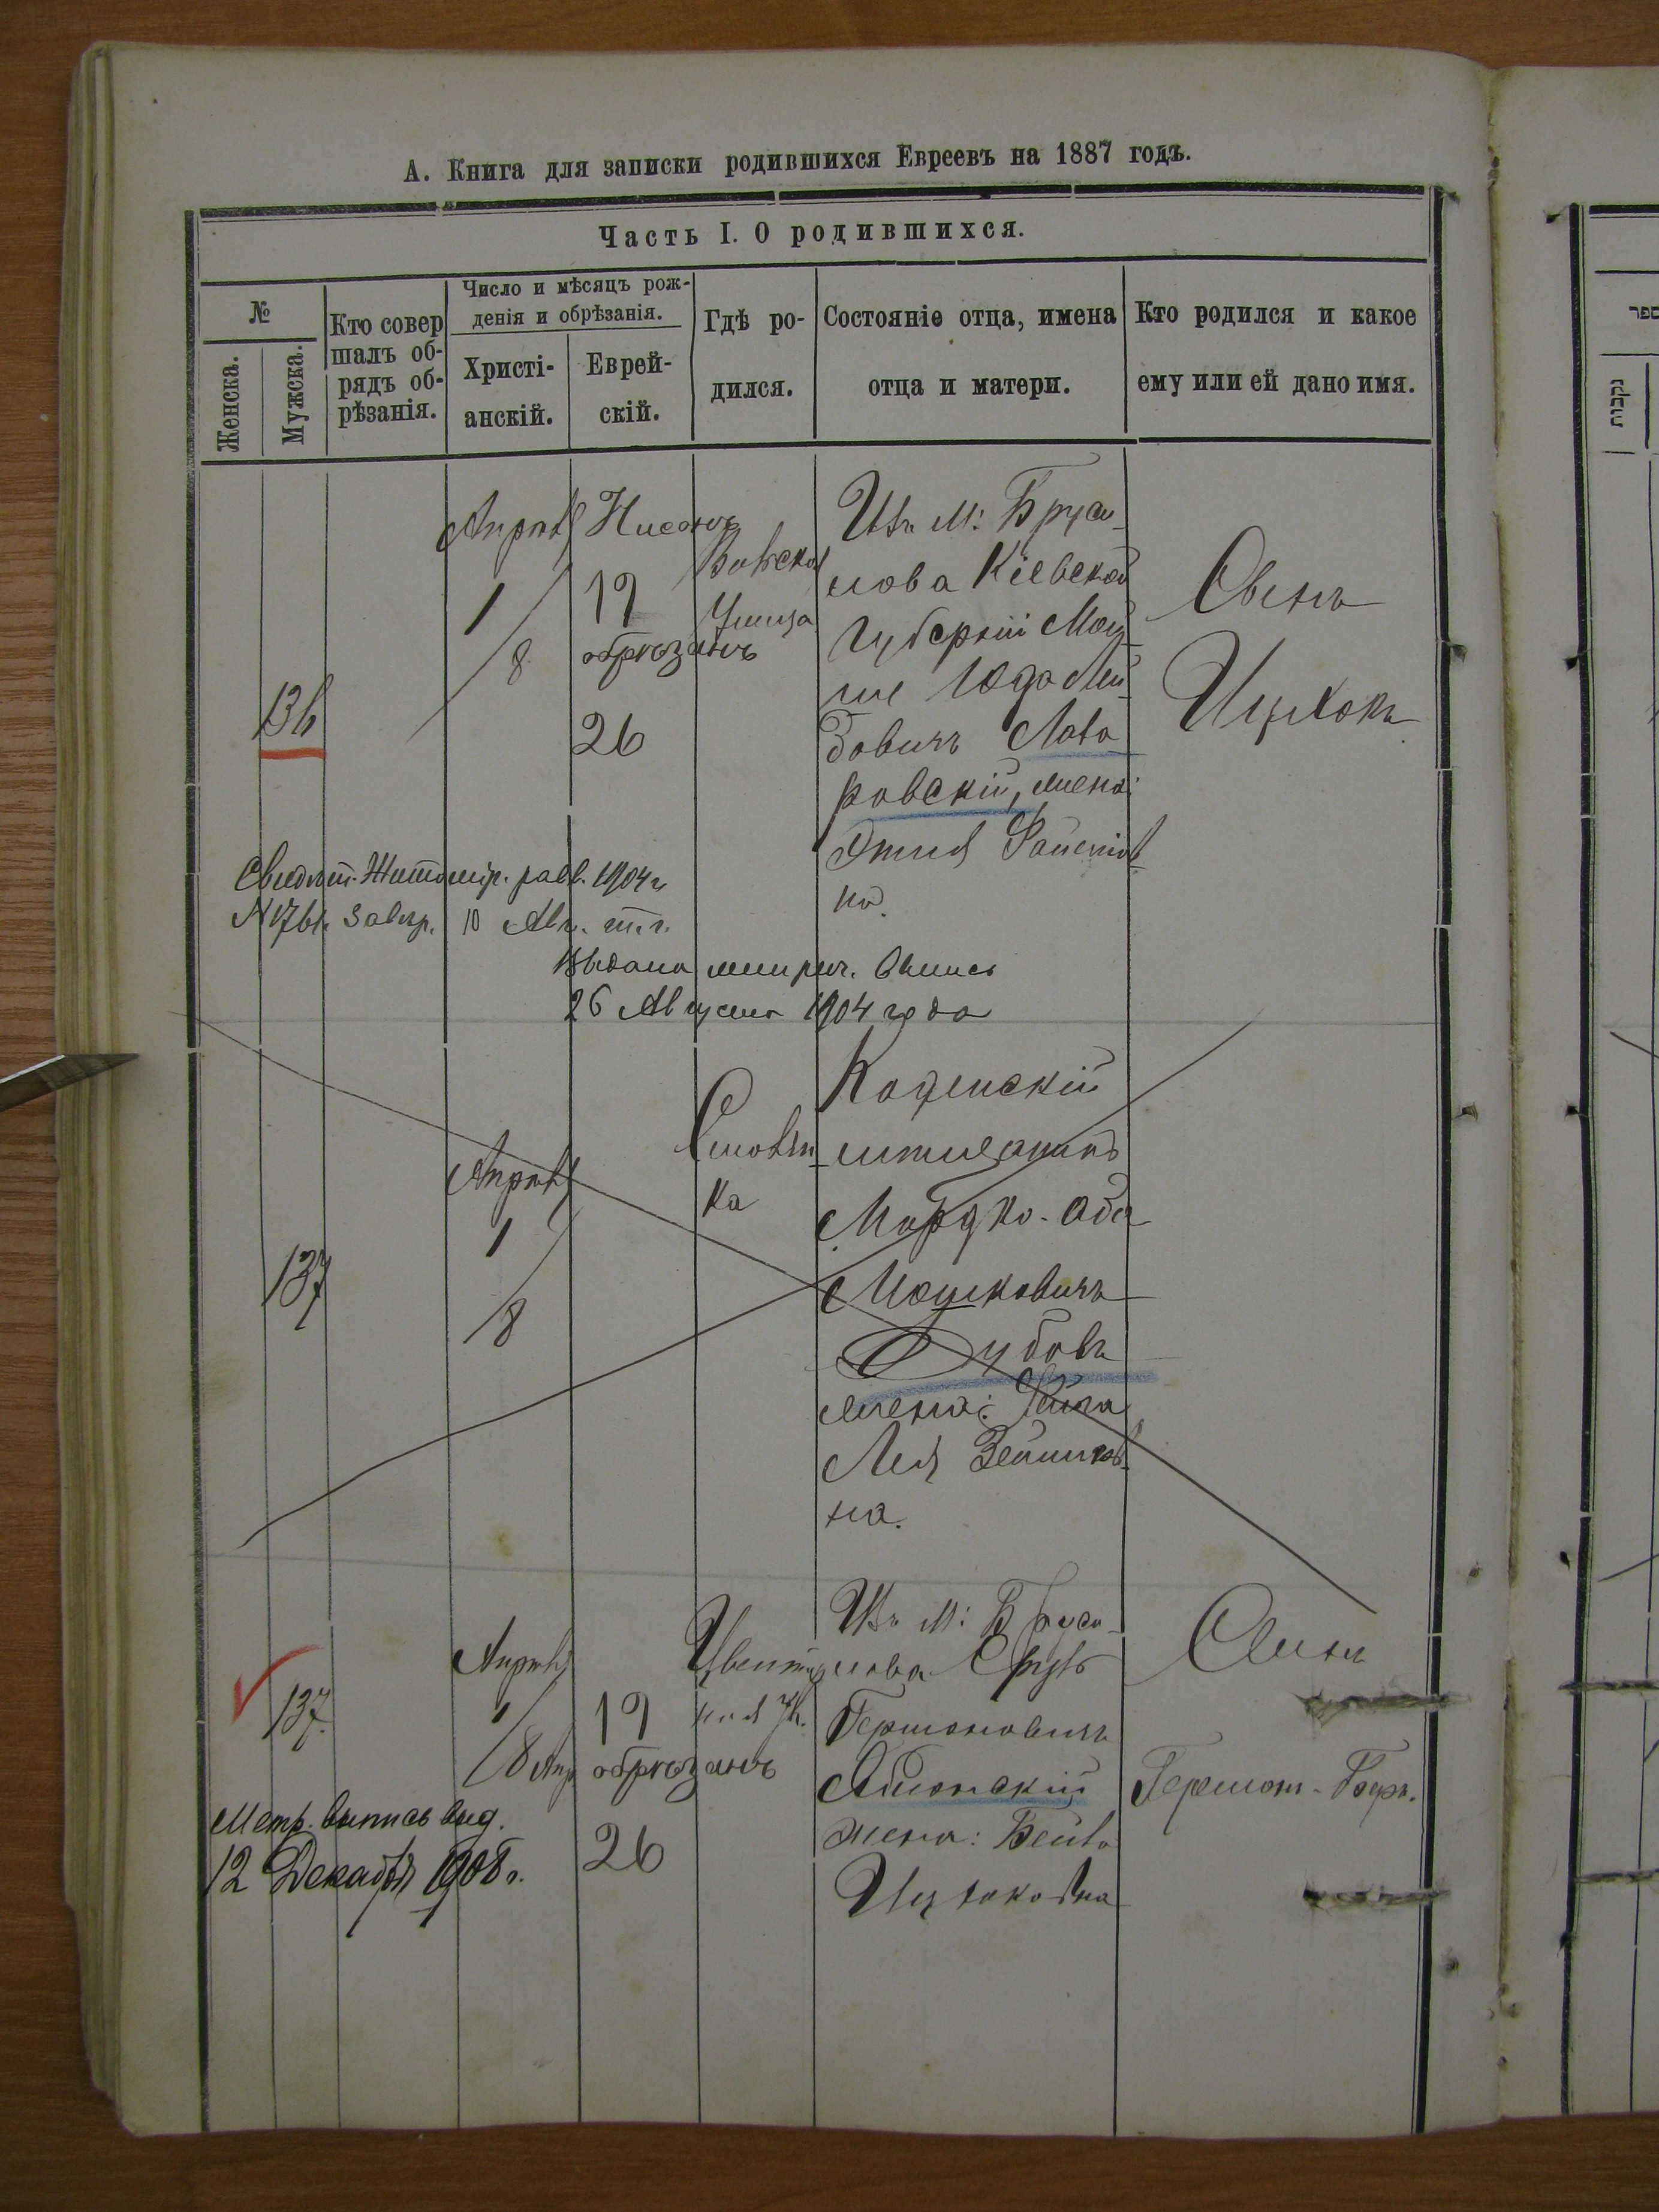 А. Книга для записки родившихся Евреевъ на 1887 годъ.
Часть I. О родившихся.
№
Женска.
Мужска.
Кто совер
шалъ об-
рядъ об-
рѣзанія.
Число и мѣсяцъ рож-
денія и обрѣзанія.
Христі-
анскій.
Еврей-
скій.
Гдѣ ро-
дился.
Состояніе отца, имена
отца и матери.
Кто родился и какое
ему или ей дано имя.
136
Апрѣль
1
8
Нисонъ
19
обрѣзанъ
26
Улица
Изъ м: Бруси-
лова Кіевской
Губерніи Мош-
ко Юдо Лей-
бовичъ
ровскій, жена:
на.
Сынъ
Ицхокъ
Свидѣт. Житомір. равв. 1904 г
завѣр. 10 Авг. т. г.
Выдана метрич. выпись
26 Августа 1904 года
137
Апрѣль
1
8
Смолян-
ка
мѣщанинъ
Мордко-Аба
Мошковичъ
Дубовъ
жена: Фейга
Лея
на.
137.
Апрѣль
1
8 Апр
19
обрѣзанъ
26
Изъ м: Бруси-
лова Сруль
Гершоновичъ
жена: Бейла
Ицхоковна
Сынъ
Гершон-Беръ.
Метр. выпись выд.
12 Декабря 1908 г.
ספר
נקבות